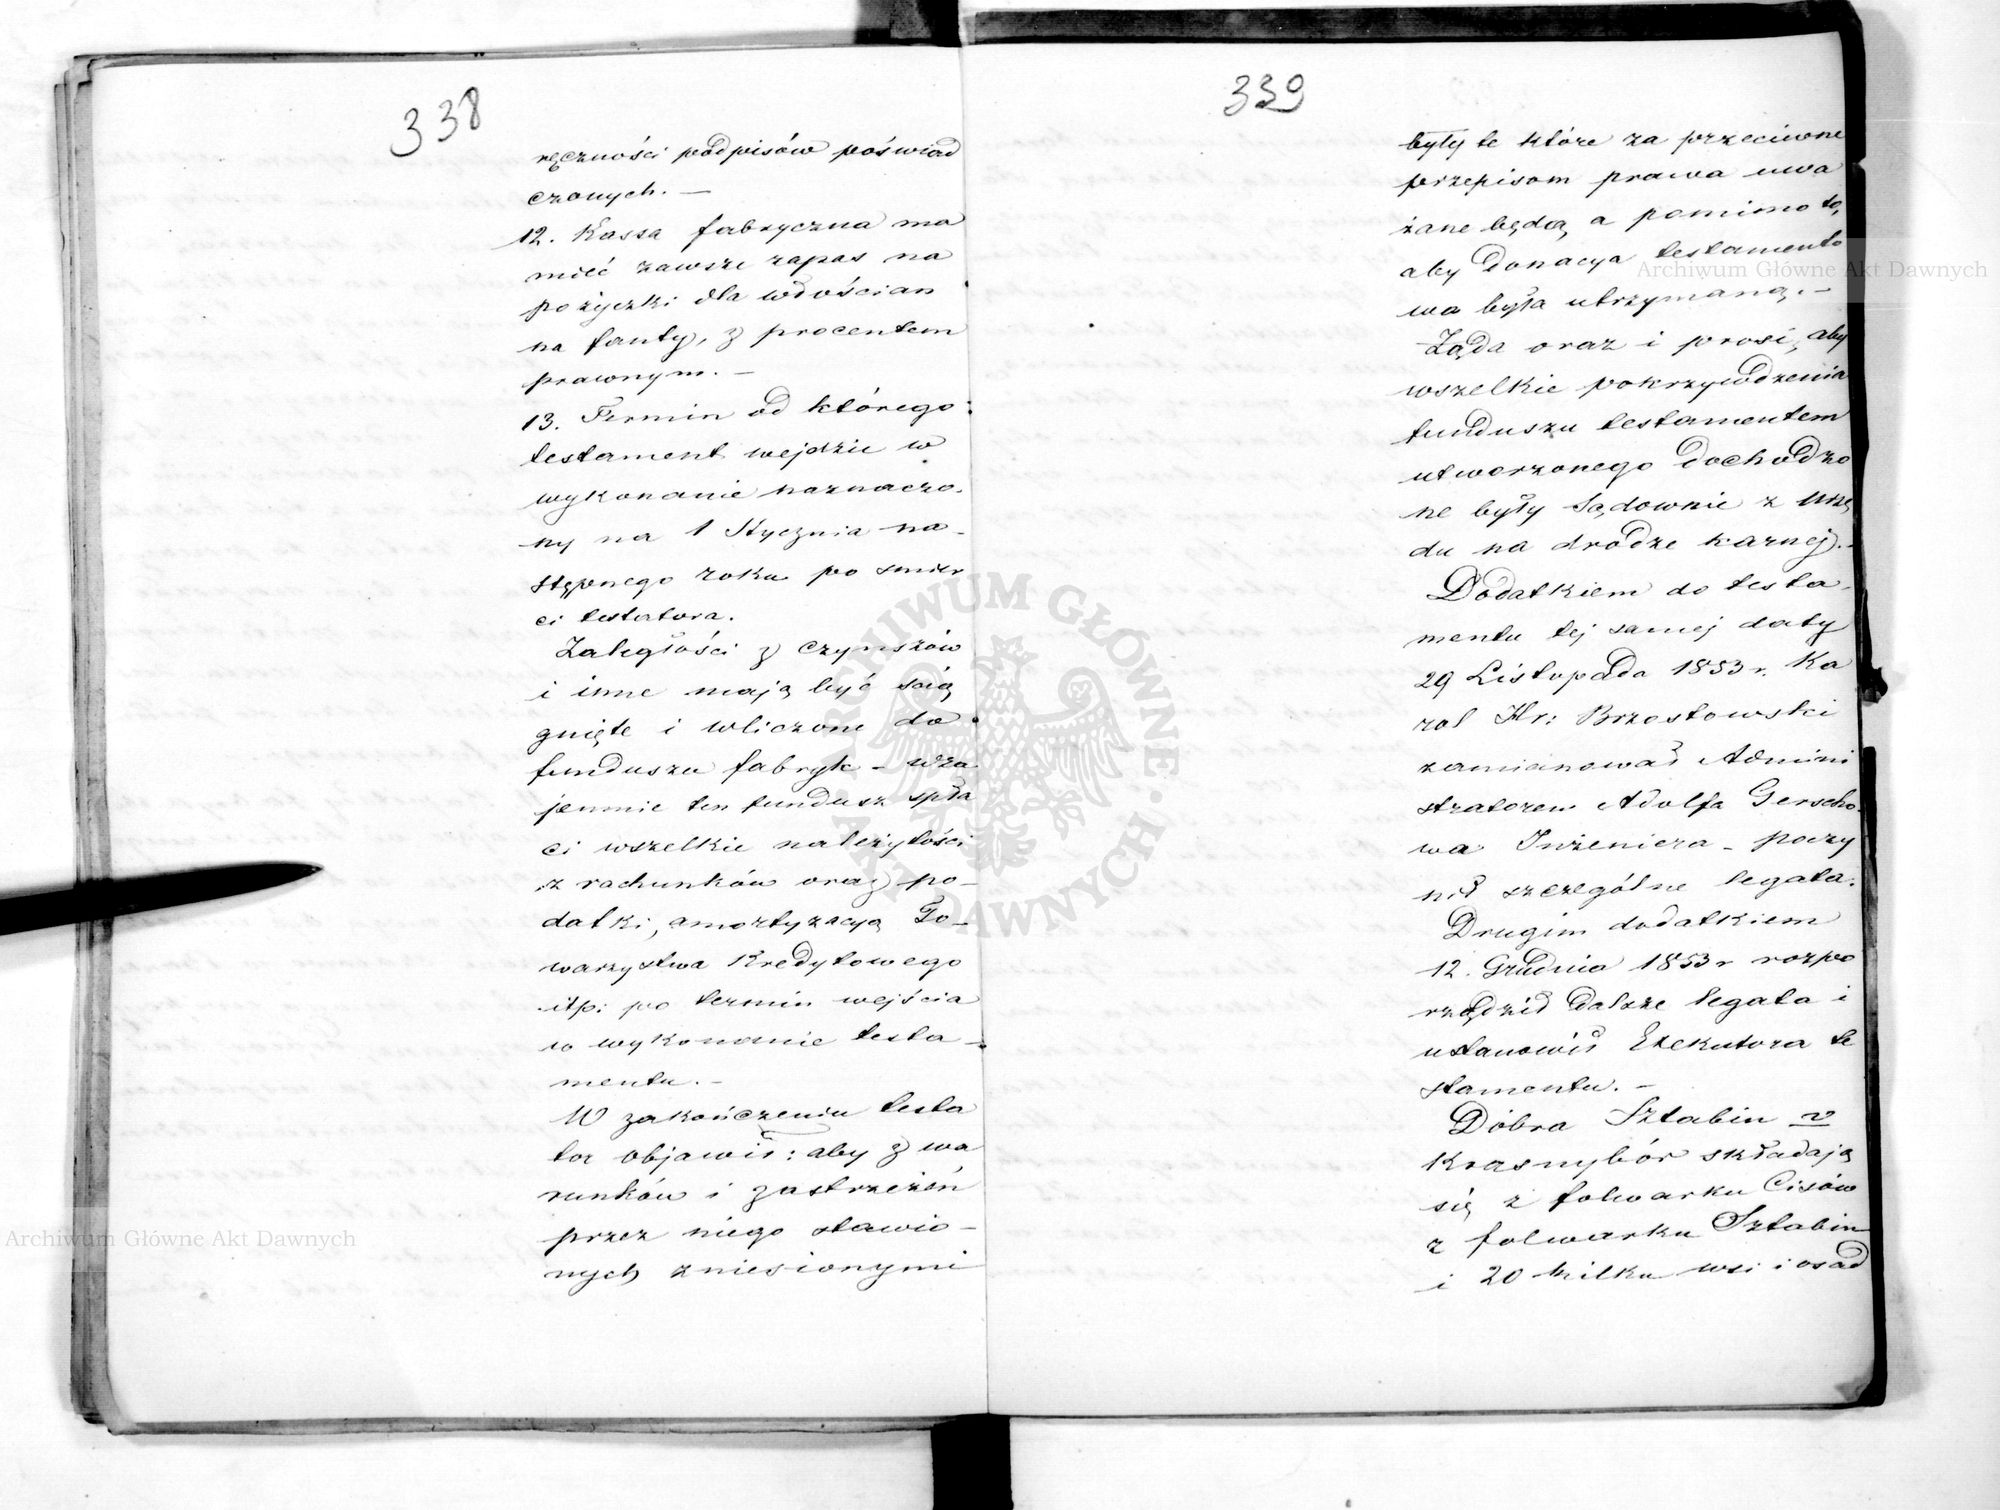 338
ręczności podpisów poświad
czonych. —
12. Kassa fabryczna ma
mieć zawsze zapas na
pożyczki dla włościan
na fanty, z procentem
prawnym. —
13. Termin od którego
testament wejdzie w
wykonanie naznaczo-
ny na 1 Stycznia na-
stępnego roku po śmier
ci testatora.
Zaległości z czynszów
i inne mają być ścią
gnięte i wliczone do
funduszu fabryk – wza
jemnie ten fundusz spła
ci wszelkie należytości
z rachunków oraz po-
datki, amortyzacyą To-
warzystwa Kredytowego
itp: po termin wejścia
w wykonanie testa-
mentu. –
W zakończeniu testa
tor objawił: aby z wa
runków i zastrzeżeń
przez niego stawio-
nych zniesionymi
339
były te które za przeciwne
przepisom prawa uwa
żane będą, a pomimo to,
aby donacya testamento
wa była utrzymaną. –
Żąda oraz i prosi, aby
wszelkie pokrzywdzenia
funduszu testamentem
utworzonego dochodzo
ne były sądownie z urzę
du na drodze karnej. –
Dodatkiem do testa-
mentu tej samej daty
29 Listopada 1853 r. Ka
rol Hr: Brzostowski
zamianował Admini
stratorem Adolfa Gerscho
wa Inżeniera – poczy
nił szczególne legata.
Drugim dodatkiem
12. Grudnia 1853 r rozpo
rządził dalsze legata i
ustanowił Exekutora te
stamentu. –
Dobra Sztabin v
Krasnybór składają
się z folwarku Cisów
z folwarku Sztabin
i 20 kilku wsi i osad
Archiwum Główne Akt Dawnych
Archiwum Główne Akt Dawnych
ARCHIWUM GŁÓWNE · AKT DAWNYCH ·